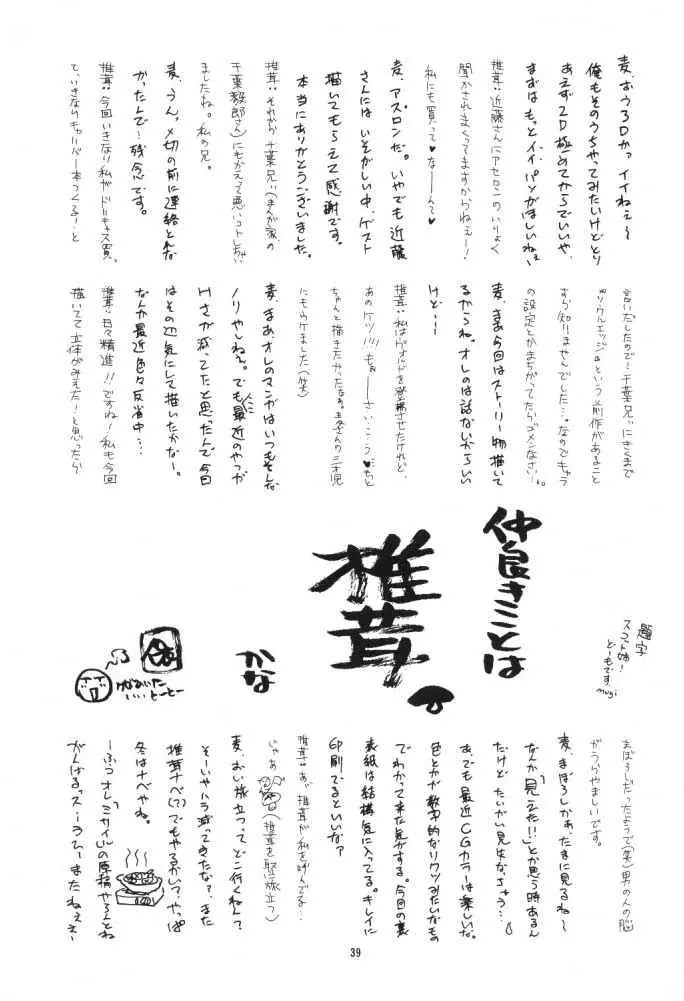 麦．おう3Dかっ イイねぇ〜
俺もそのうちやってみたいけどとり
あえず2D極めてからでいいや．
まずは、もっとイイパソがほしいねぇ
椎茸：近藤さんにアセロンのいりょく
聞かされまくってますからねぇー！
私にも買って♥なーーんて♥
麦．アスロンだ。いやでも近藤
さんには いそがしい中、ゲスト
描いてもらえて感謝です。
本当にありがとうございました。
椎茸：それから千葉兄ぃ(まんが家の
千葉毅郎さん)にもかえて悪いコトしちゃい
ましたね。私の兄。
麦．うん。〆切の前に連絡とれな
かったんで…残念です。
椎茸：今回いきなり私がドリキャス買っ
て、いきなりキャリバー本つくる！と
言いだしたので…千葉兄ぃにきくまで
『ソウルエッジ』という前作があること
すら知りませんでした…。なのでキャラ
の設定とかまちがってたらゴメンなさい。
麦．まあ今回はストーリー物描いて
るからね。オレのは話ないからいい
けど…
椎茸：私はヴォルドを登場させたけれど、
あのケツ!!!もぉーーさいっこう♥もっと
ちゃんと描きたかったなぁ。麦さんの三才児
にもウケました(笑)
麦．まあ、オレのマンガはいつもそんな
ノリやしねぇ。でも最近のやつが
Hさが減ってたと思ったんで今回
はその辺気にして描いたかなー。
なんか最近色々反省中…
椎茸：日々精進!!ですね！私も今回
描いてて立体がみえた！と思ったら
仲良きことは
椎茸。
かな
題字
スコット姉！
どーもです。
mugi
まぼろしだったようで(笑)男の人の脳
がうらやましいです。
麦．まぼろしかぁ、たまに見るね〜
なんか「見えた!!」とか思う時あるん
だけど、たいがい見失なっちゃう…
あ、でも最近CGカラーは楽しいな。
色とかが数字的なリクツみたいなもの
でわかって来た気がする。今回の裏
表紙は結構気に入ってる。キレイに
印刷でるといいな？
椎茸：あ、椎茸が私を呼んでる…
じゃあ (椎茸を堅に旅立つ)
麦．おい旅立つってどこ行くねん？
そーいやハラ減ってきたな？、また
椎茸ナベ(?)でもやるかい？やっぱ
冬はナベやね。
ーふっ オレ「ミサイル」の原稿やろっとね
がんばるっス…うひ…またねぇぇ〜
39